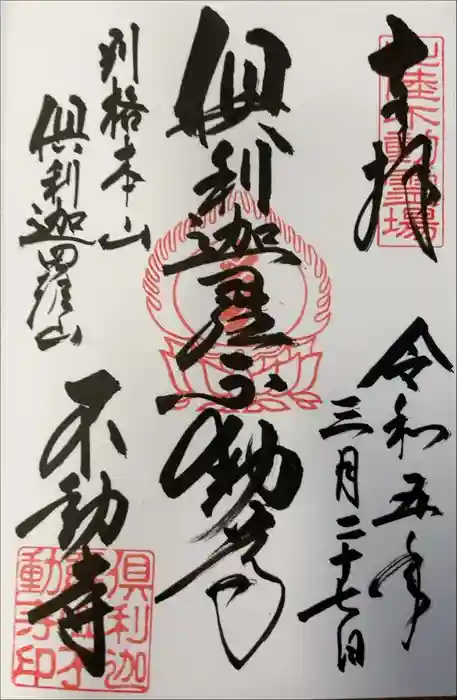 奉拝
北陸不動霊場
令和五年
三月二十七日
倶利迦羅不動尊
別格本山
倶利迦羅山
不動寺